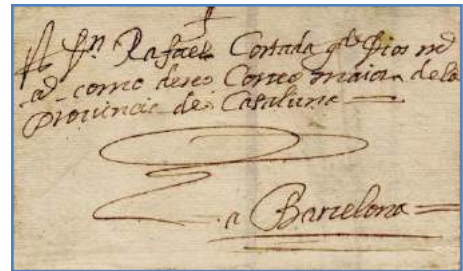 A Dn. Rafael Cortada gde Dios md
ad como deseo Correo maior de la
Provincia de Cataluna
a Barcelona